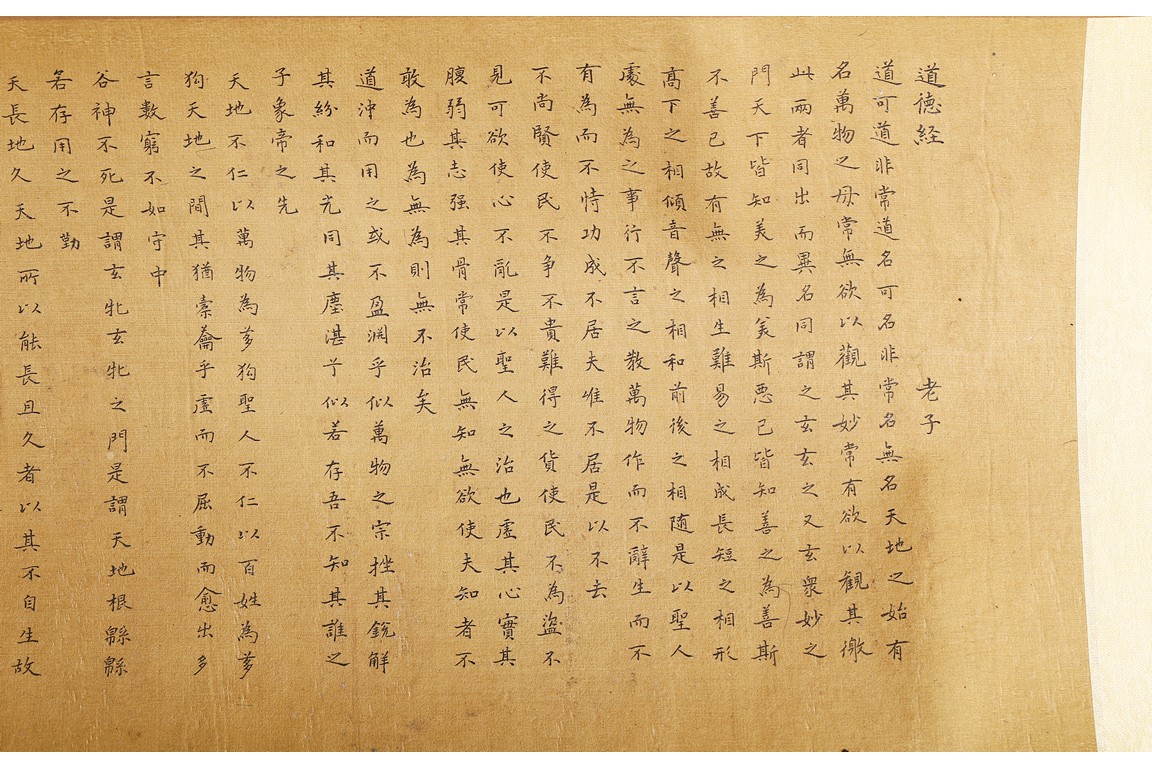 道德経 老子
道可道非常道名可名非常名無名天地之始有
名萬物之母常無欲以觀其妙常有欲以観其徼
此兩者同出而異名同謂之玄玄之又玄衆妙之
門天下皆知美之為美斯悪已皆知善之為善斯
不善已故有無之相生難易之相成長短之相形
高下之相傾音聲之相和前後之相随是以聖人
處無為之事行不言之教萬物作而不辭生而不
有為而不恃功成不居夫唯不居是以不去
不尚賢使民不争不貴難得之貨使民不為盜不
見可欲使心不亂是以聖人之治也虛其心實其
腹弱其志强其骨常使民無知無欲使夫知者不
敢為也為無為則無不治矣
道沖而用之或不盈淵乎似萬物之宗挫其銳解
其紛和其光同其塵湛兮似若存吾不知其誰之
子象帝之先
天地不仁以萬物為芻狗聖人不仁以百姓為芻
狗天地之間其猶橐籥乎虛而不屈動而愈出多
言數窮不如守中
谷神不死是謂玄牝玄牝之門是謂天地根緜緜
若存用之不勤
天長地久天地所以能長且久者以其不自生故